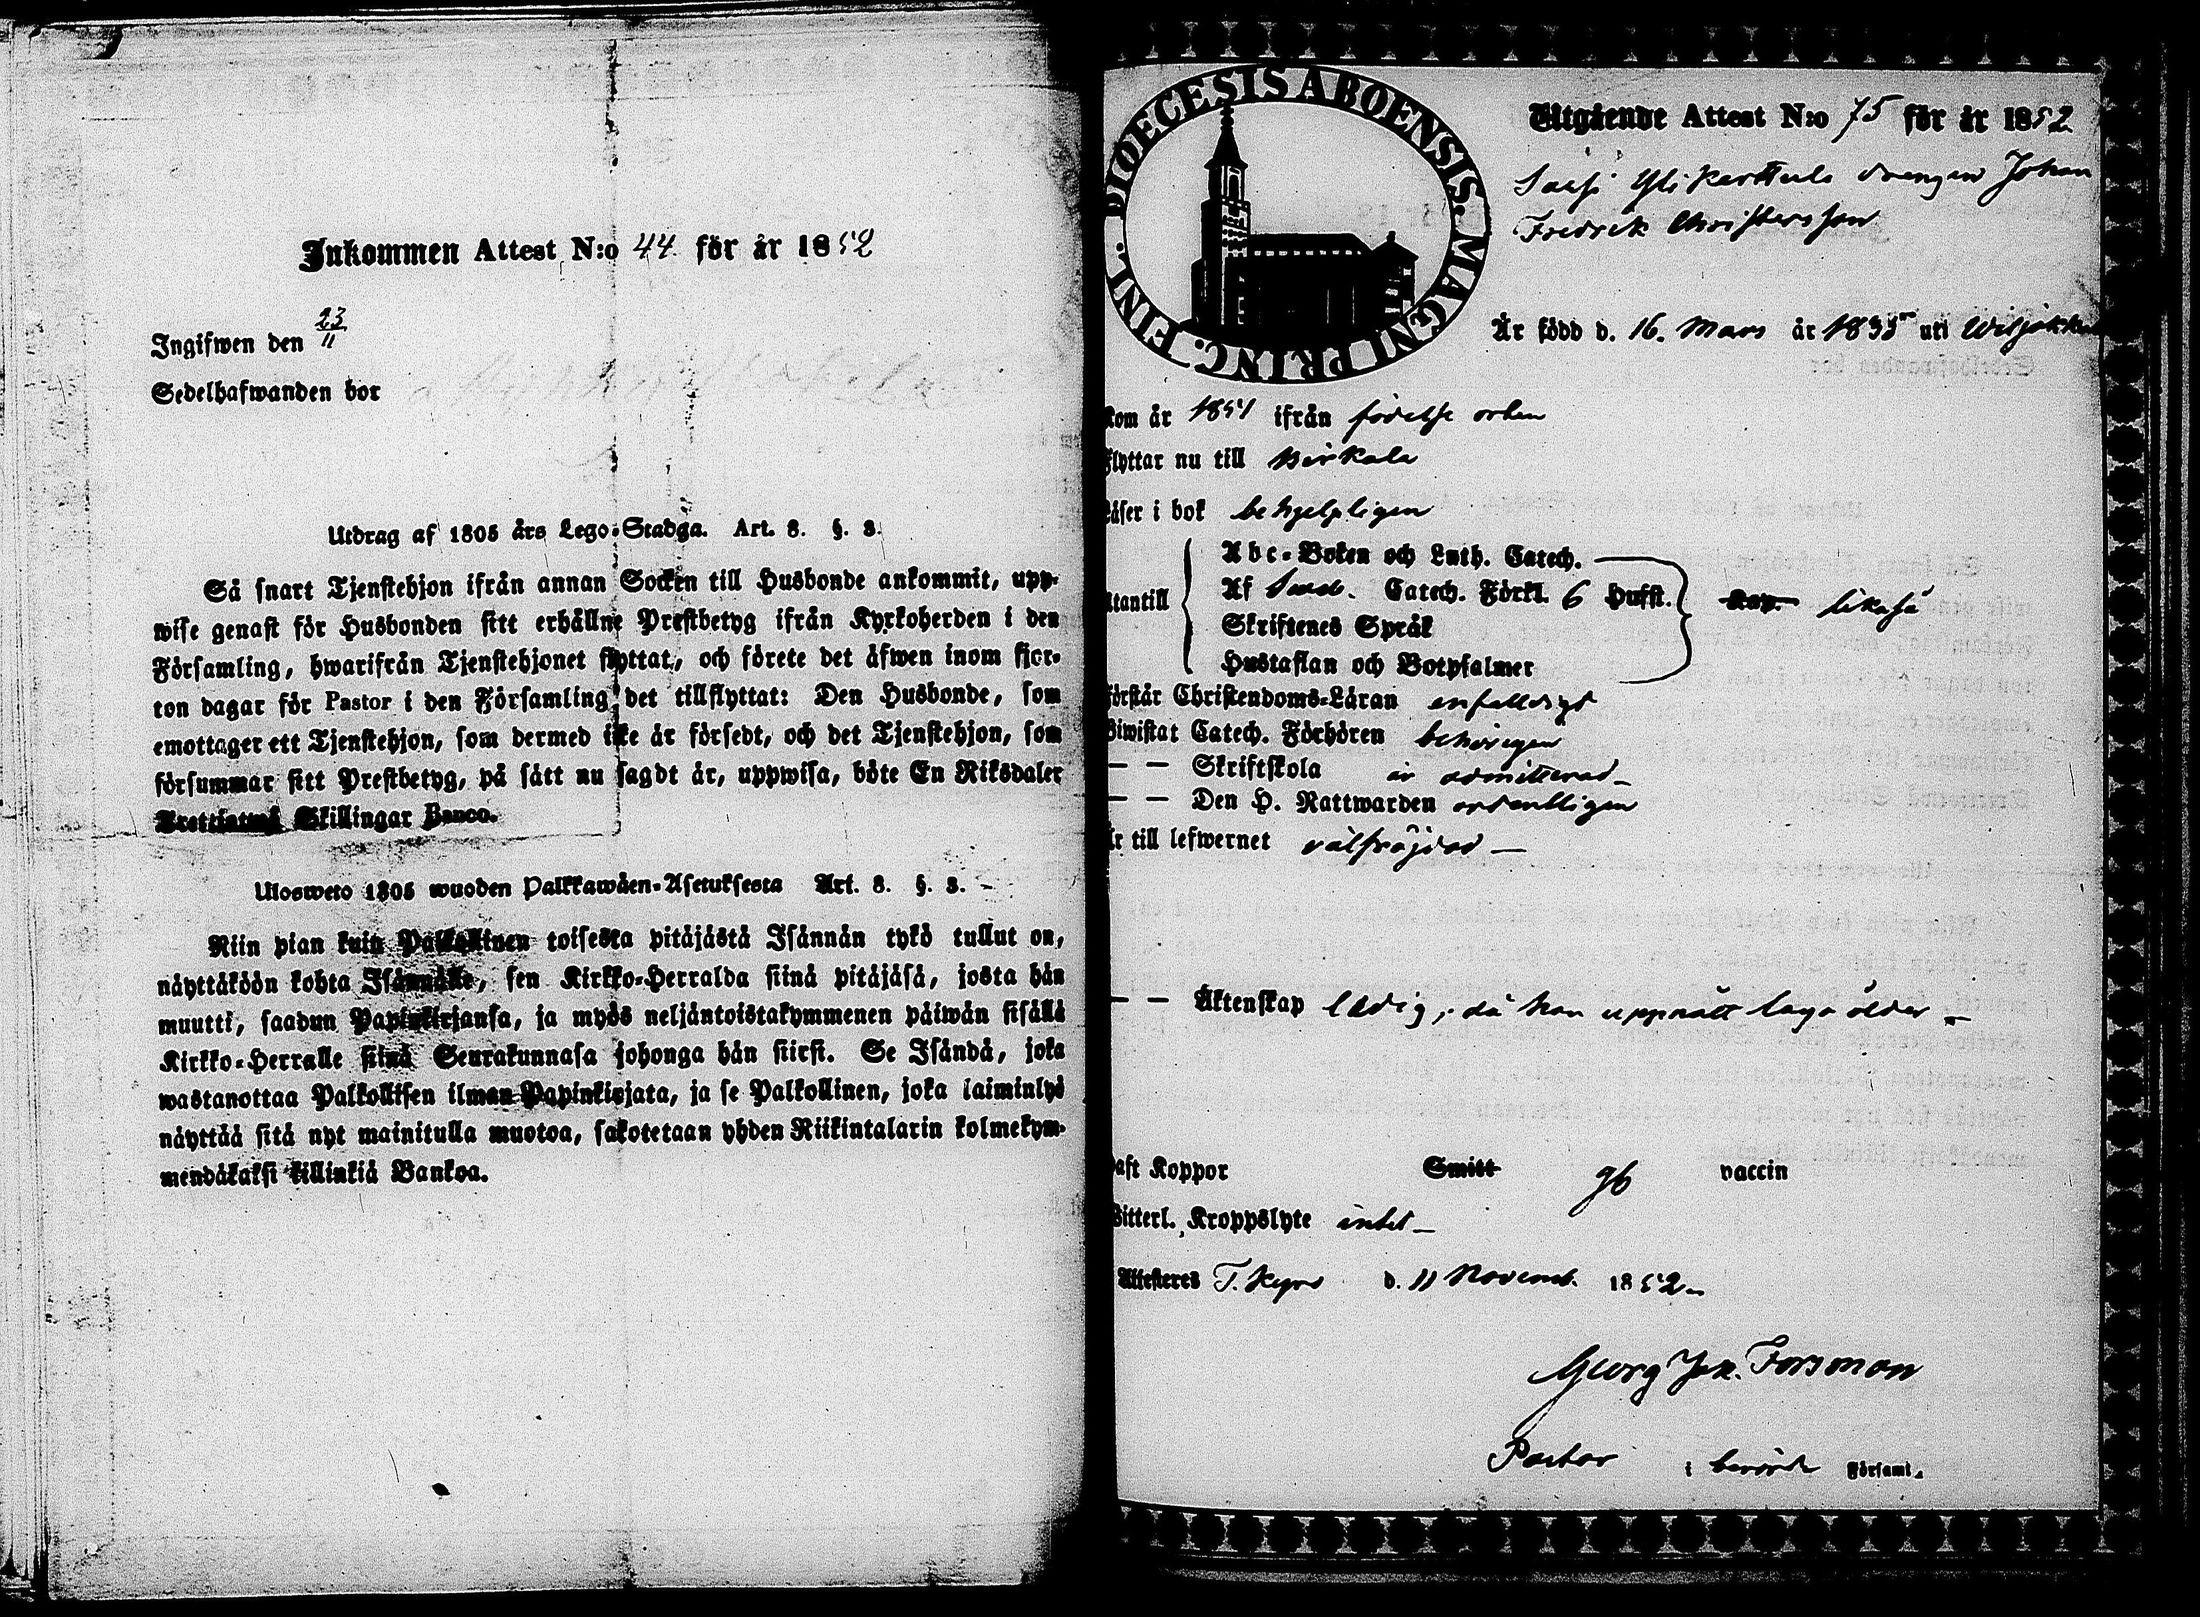 Inkommen Attest N:o 44. för år 1852
Ingifwen den 23/11
Sedelhafwanden bor
Utdrag af 1805 års Lego-Stadga. Art. 8. §. 3.
Så snart Tjenstehjon ifrån annan Socken till Husbonde ankommit, upp-
wise genast för Husbonden sitt erhållne Prestbetyg ifrån Kyrkoherden i den
Församling, hwarifrån Tjenstehjonet flyttat, och förete det äfwen inom fjor-
ton dagar för Pastor i den Församling det tillflyttat: Den Husbonde, som
emottager ett Tjenstehjon, som dermed icke är försedt, och det Tjenstehjon, som
försummar sitt Prestbetyg, på sätt nu sagdt är, uppwisa, böte En Riksdaler
Trettiotwå Skillingar Banco.
Ulosweto 1805 wuoden Palkkawäen-Asetuksesta Art. 8. §. 3.
Niin pian kuin Palkollinen toisesta pitäjästä Isännän tykö tullut on,
näyttäköön kohta Isännälle, sen Kirkko-Herralda siinä pitäjäsä, josta hän
muutti, saadun Papinkirjansa, ja myös neljäntoistakymmenen päiwän sisällä
Kirkko-Herralle siinä Seurakunnasa johonga hän siirsi. Se Isändä, joka
wastanottaa Palkollisen ilman Papinkirjata, ja se Palkollinen, joka laiminlyö
näyttää sitä nyt mainitulla muotoa, sakotetaan yhden Riikintalarin kolmekym-
mendäkaksi killinkiä Bankoa.
DIOECESIS ABOENSIS. MAGNI PRINC. FINL.
Utgående Attest N:o 75 för år 1852
Ylikerttula drengen Johan
Fredrik Christersson
Är född d. 16. Mars år uti
kom år 1851 ifrån födelse orten
flyttar nu till Birkala
Läser i bok behjelpligen
Abc-Boken och Luth. Catech.
Utantill Af Sweb. Catech. Förkl. 6 Hufst. likaså
Skriftenes Språk
Hustaflan och Botpsalmer
Förstår Christendoms-Läran enfalldigt
Biwistat Catech. Förhören behörigen
— — Skriftskola är admitterad —
— — Den H. Nattwarden ordentligen
Är till lefwernet välfräjdad —
— — Äktenskap ledig, då han uppnått laga ålder —
Haft Koppor Smitt gb vaccin
Witterl. Kroppslyte intet —
Attesteres T. Kyro d. 11 Novemb. 1852 —
Georg Jak. Forsman
Pastor i berörde Församl.